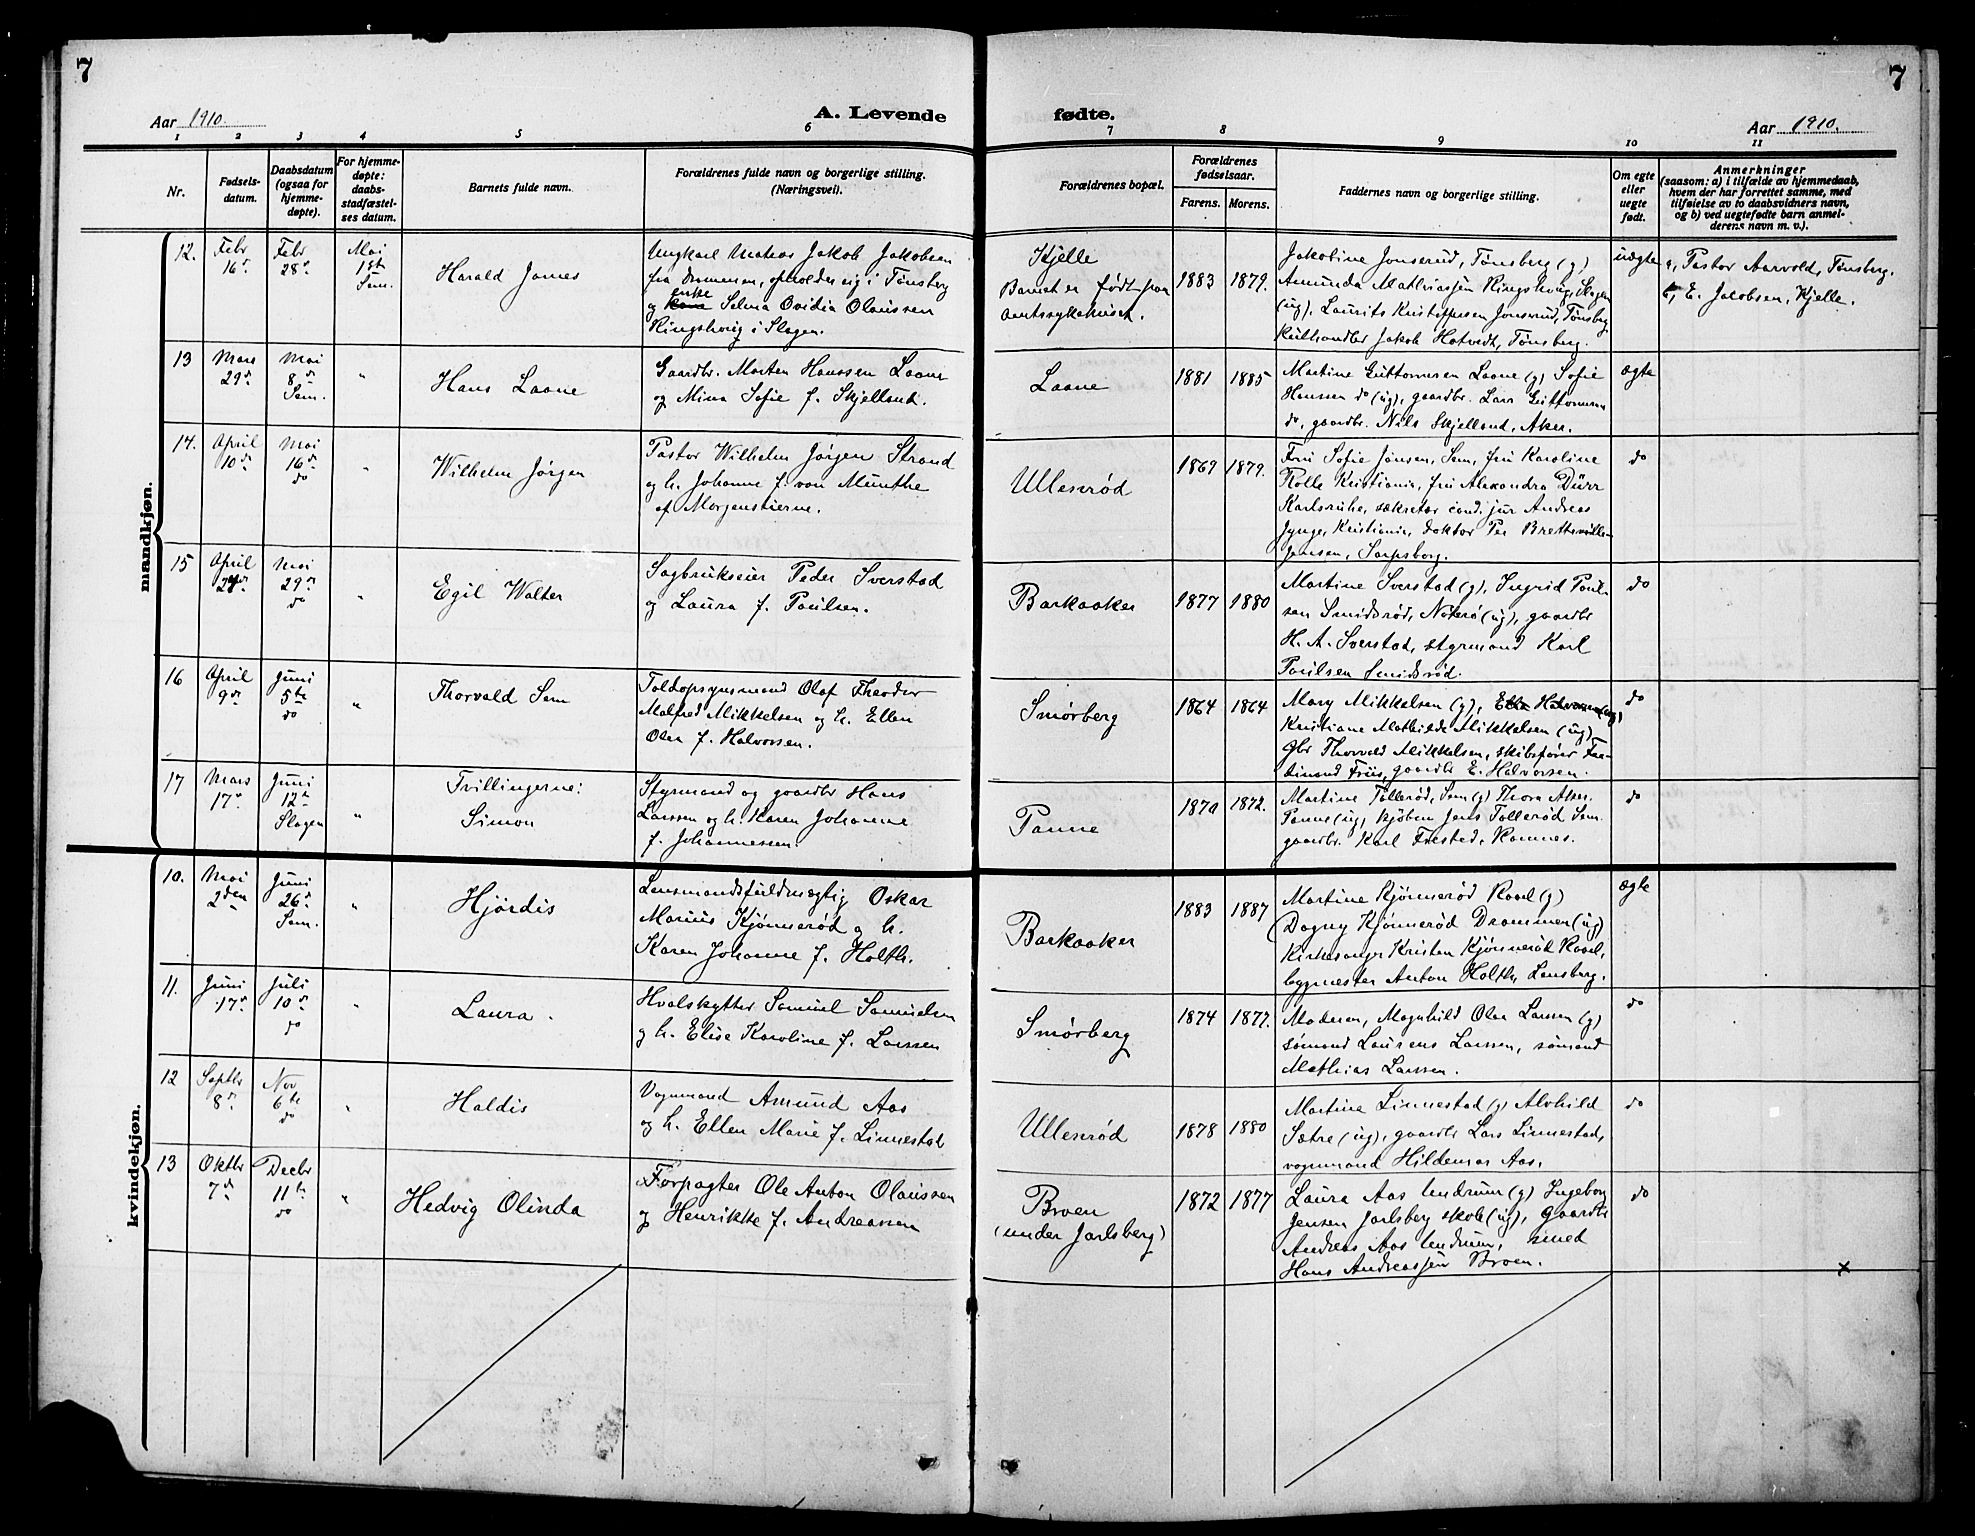 7
7
Aar 1910.
A. Levende
fødte.
Aar 1910.
1 2 3 4 5 6 7 8 9 10 11
Nr.
Fødsels-
datum.
Daabsdatum
(ogsaa for
hjemme-
døpte).
For hjemme-
døpte:
daabs-
stadfæstel-
ses datum.
Barnets fulde navn.
Forældrenes fulde navn og borgerlige stilling.
(Næringsvei).
Forældrenes bopæl.
Forældrenes
fødselsaar.
Farens. Morens.
Faddernes navn og borgerlige stilling.
Om egte
eller
uegte
født.
Anmerkninger
(saasom: a) i tilfælde av hjemmedaab,
hvem der har forrettet samme, med
tilføielse av to daabsvidners navn,
og b) ved uegtefødte barn anmel-
derens navn m. v.).
mandkjøn.
12.
Febr
16de
Febr
28de
Mai
1ste
Sem.
Harald James
Ungkarl Mateas Jakob Jakobsen
fra Drammen, opholder sig i Tønsberg
enke
og Selma Ovidia Olaussen
Ringshoug i Slagen.
Kjelle
Barnet er født paa
amtssykehuset.
1883
1879.
Jakobine Jonserud, Tønsberg (g)
Amunda Mathiassen Ringshoug, Slagen
(ug), Laurits Kristiffersen Jonsrud, Tønsberg
kulhandler Jakob Hotvedt, Tønsberg.
uægte
a, Pastor Aarvold, Tønsberg.
b, E. Jacobsen, Kjelle.
13
Mars
29de
Mai
8de
Sem.
"
Hans Laane
Gaardbr. Morten Hanssen Laane
og Mina Sofie f. Skjelland.
Laane
1881
1885
Martine Guttormsen Laane (g) Sofie
Hanssen do (ug), gaardbr. Lars Guttormsen
do, gaardbr. Nils Skjelland, Aker.
ægte
14.
April
10de
Mai
16de
do
"
Wilhelm Jørgen
Pastor Wilhelm Jørgen Strand
og h. Johanne f. von Munthe
af Morgenstierne.
Ullensrød
1869
1879.
Fru Sofie Jensen, Sem, fru Karoline
Rolle Kristiania, fru Alexandra Dürr
Karlsruhe, sekretær cand. jur Andreas
Jynge, Kristiania, doktor Per
Jensen, Sarpsborg.
do
15
April
Mai
29de
do
"
Egil Walter
Sagbrukseier Peder Sverstad
og Laura f. Paulsen.
Barkaaker
1877
1880
Martine Sverstad (g), Ingrid Paul-
sen Smidsrød, Nøterø (ug), gaardbr
H. A. Sverstad, styrmand Karl
Paulsen Smidsrød.
do
16
April
9de
Juni
5te
do
"
Thorvald Sem
Toldopsynsmand Olaf Theodor
Malfred Mikkelsen og h. Ellen
Olea f. Halvorsen.
Smørberg
1864
1864
Mary Mikkelsen (g), Ellen Halvorsen (ug)
Kristiane Mathilde Mikkelsen (ug)
Gbr Thorvald Mikkelsen, skibsfører Fer-
dinand Friis, gaardbr E. Halvorsen.
do
17
Mars
17de
Juni
12te
Slagen
"
Tvillingerne:
Simon
Styrmand og gaardbr Hans
Larssen og h. Karen Johanne
f. Johannessen.
Panne
1870
1872.
Martine Tollerød, Sem (g) Thora Aker.
Panne (ug), kjøbm Jens Tollerød Sem.
gaardbr. Karl Frestad, Ramnes.
do
kvindekjøn.
10.
Mai
2den
Juni
26de
Sem.
"
Hjørdis
Lensmandsfuldmægtig Oskar
Marius Kjønnerød og h.
Karen Johanne f. Holth.
Barkaaker
1883
1887
Martine Kjønnerød Raael (g)
Dagny Kjønnerød Drammen (ug)
Kirkesanger Kristen Kjønnerød Raael,
bygmester Anton Holth, Lensberg.
ægte
11.
Juni
17de
Juli
10de
do
"
Laura.
Hvalskytter Samuel Samuelsen
og h. Elise Karoline f. Larssen
Smørberg
1874
1877.
Moderen, Magnhild Olea Larssen (g)
sømand Laurens Larssen, sømand
Mathias Larssen.
do
12
Septbr
8de
Nov
6te
do
"
Haldis
Vognmand Amund Aas
og h. Ellen Marie f. Linnestad
Ullensrød
1878
1880
Martine Linnestad (g) Alvhild
Sætre (ug), gaardbr Lars Linnestad,
vognmand Hildemar Aas.
do
13
Oktbr
7de
Decbr
11te
do
"
Hedvig Olinda
Forpagter Ole Anton Olaussen
og Henrikke f. Andreassen
Broen
(under Jarlsberg)
1872
1877
Laura Aas Undrum (g) Ingeborg
Jensen Jarlsberg skole (ug), Gaardbr
Andreas Aas Undrum, smed
Hans Andreassen Broen.
do
x